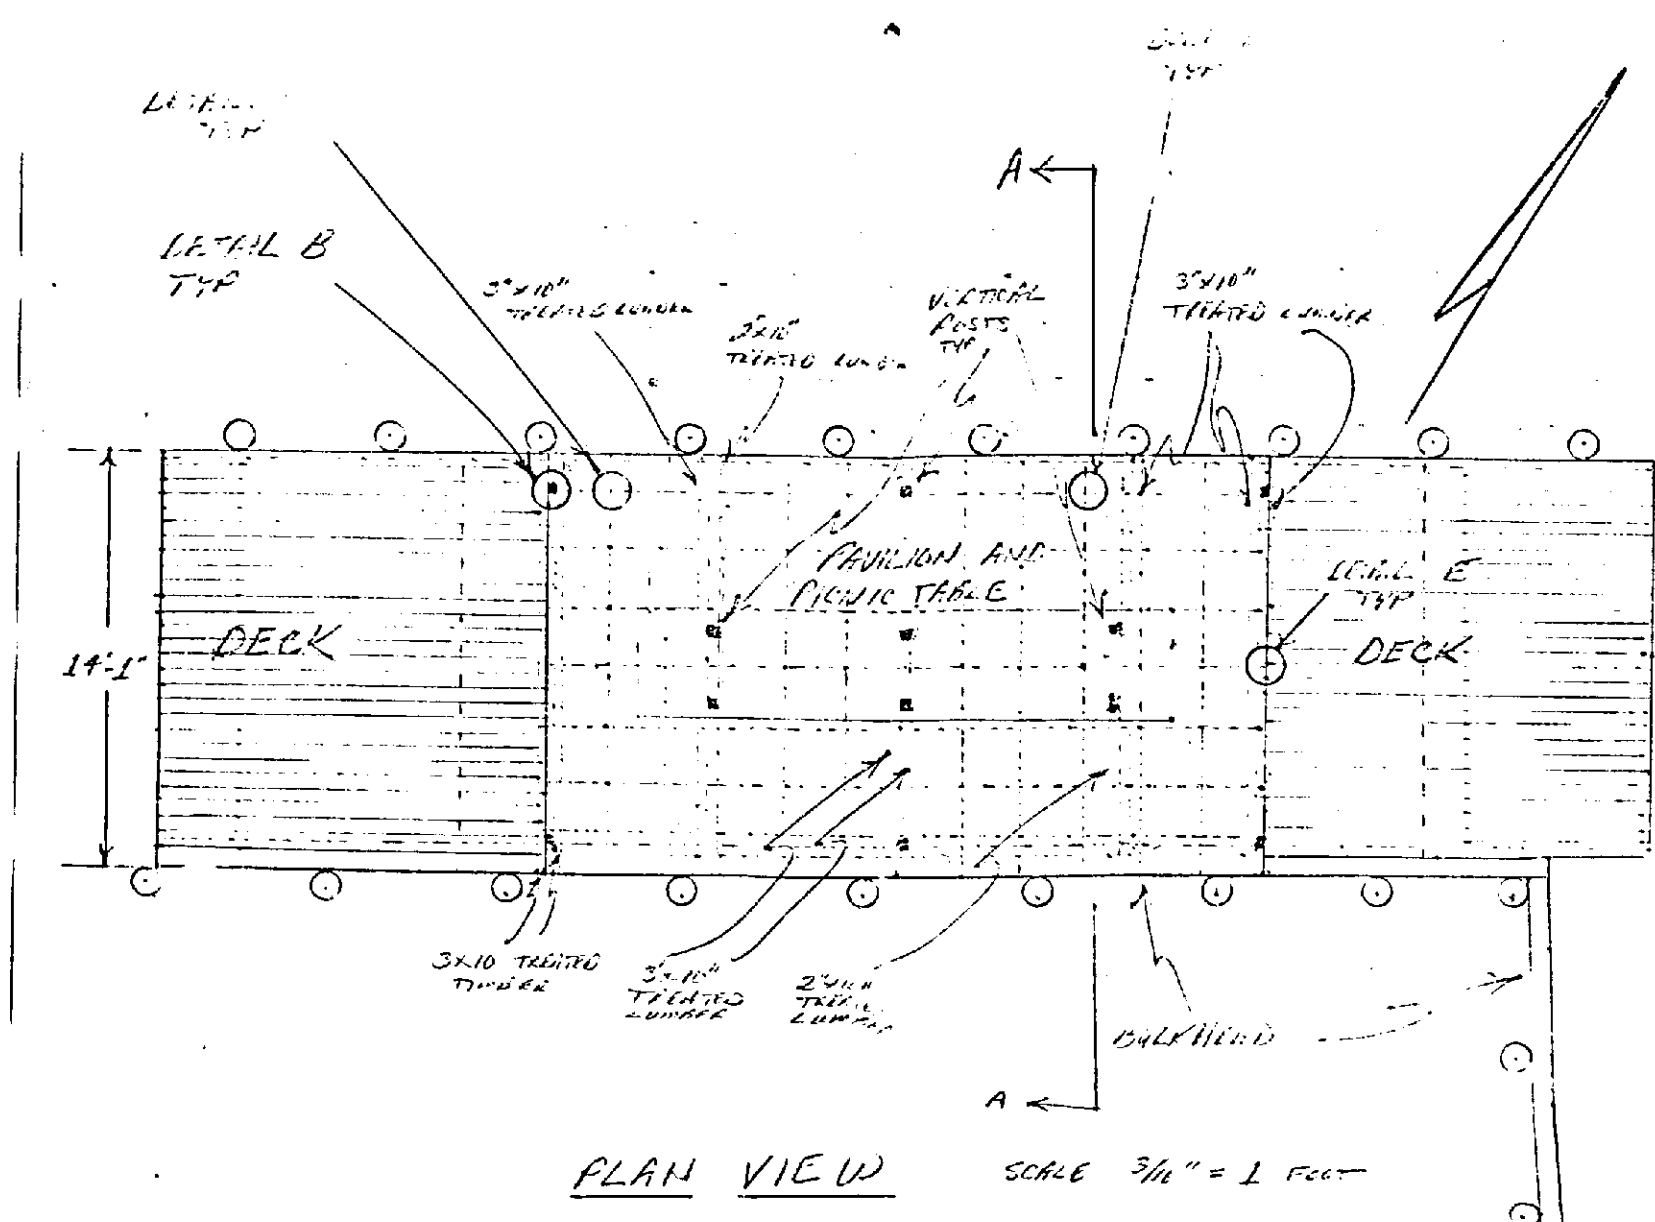 TYP
TYP
A
DETAIL B
TYP
3"x10"
TREATED LUMBER
2x10"
TREATED LUMBER
VERTICAL
POSTS
TYP
3"x10"
TREATED LUMBER
PAVILION AND
PICNIC TABLE
E
TYP
DECK
DECK
14'-1"
3x10 TREATED
TIMBER
3"x10"
TREATED
LUMBER
LUMBER
BULKHEAD
A
PLAN VIEW
SCALE 3/16" = 1 FOOT